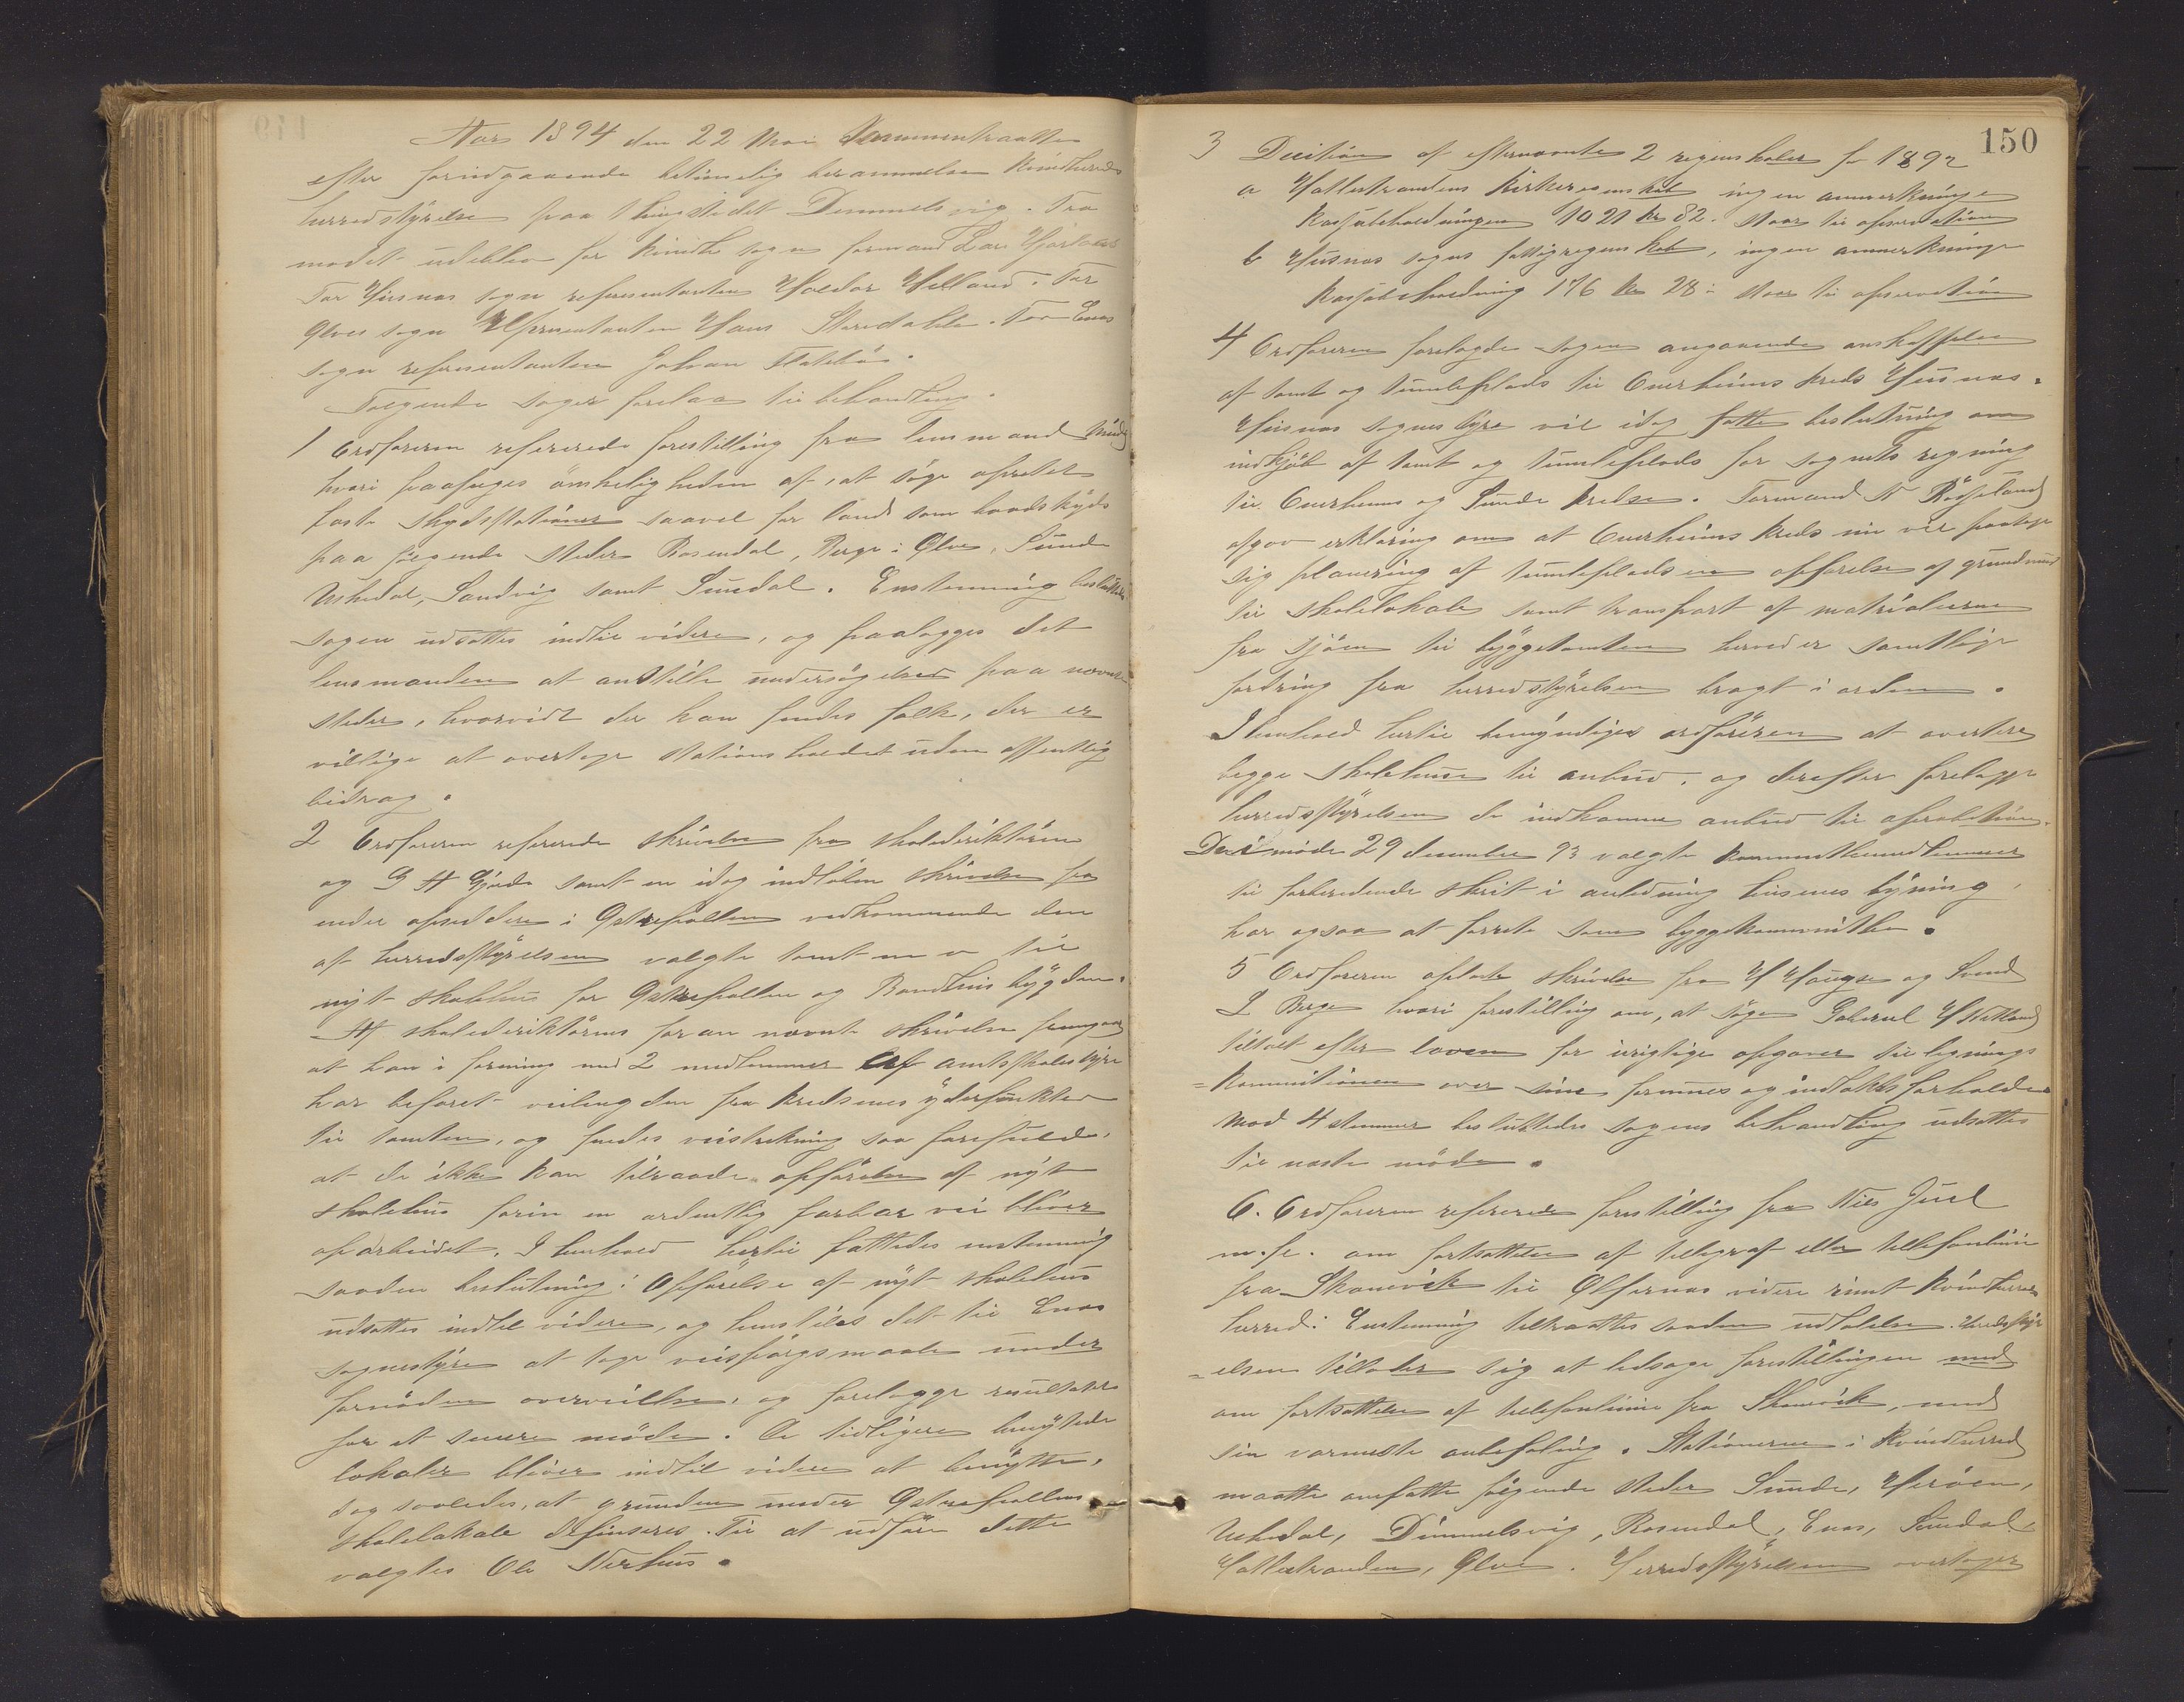 Aar 1894 den 22 Mai Sammentraatte
efter foriudgaaende betimelig berammelse Kvindherreds
herredstyrelse paa thingstedet Dimmelsvig. Fra
mødet udeblev for Kvindh. sogn formand Lars
For Husnæs sogn repræsentanten Haldor Helland. For
Ølves sogn Repræsentanten Hans. For Enæs
sogn repræsentanten Johan
Følgende sager forelaa til behandling.
1 Ordføreren refererede forestilling fra lensmand
hvori paapeges ønskeligheden af, at søge oprettet
faste Skydsstationer saavel for land som baadskyds
paa følgende steder Rosendal, Berge i Ølve, Sunde
Uskedal, Sandvig samt Sundal. Enstemmig besluttedes
sagen udsættes indtil videre, og paalægges det
lensmanden at anstille undersøgelser paa nævnte
steder, hvorvidt der kan findes folk, der er
villige at overtage stationsholdet uden offentlig
bidrag.
2 Ordføreren refererede skrivelse fra skoledirektøren
og G H Gjerde samt en idag indløben skrivelse fra
endel opsiddere i Østrepollen vedkommende den
af herredsstyrelsen valgte tomt m v til
nyt skolehus for Østrepollen og bygden.
Af skoledirektørens foran nævnte skrivelse fremgaar
at han i forening med 2 medlemmer af amtsskolestyre
har befaret veilengden fra kredsenes yderpunkter
til tomten, og findes veistrekning saa farefulde,
at de ikke kan tilraade opførelse af nyt
skolehus forin en ordentlig farbar vei bliver
oparbeidet. I henhold hertil fattedes enstemmig
saaden beslutning: Opførelse af nyt skolehus
udsættes indtil videre, og henstiles det til Enæs
sognestyre at tage veispørgsmaale under
fornøden overveielse, og forelægge resultatet
for et senere møde. De tidligere benyttede
lokaler bliver indtil videre at benytte,
dog saaledes, at grunden under Østrepollens
skolelokale. Til at udføre dette
valgtes Ole Nerhus.
150
3 Decition af efternævnte 2 regnskaber for 1892
a Hatlestrandens Kirkeregnskab ingen anmerkninge
Kassabeholdningen 1021 kr 82. Staar til
b Husnæs sogns fattigregnskab, ingen anmerkninge
Kassabeholdning 176 kr 28. Staar til
4 Ordføreren forelagde sagen angaaende anskaffelse
af tomt og tumleplads til Omerheims kreds Husnæs.
Husnæs sognestyre vil idag fatte beslutning om
indkjøb af tomt og tumleplads for sognets regning
til Omerheims og Sunde kredse. Formand N
afgav erklæring om at Omerheims kreds nu vil paatage
sig planering af tumlepladsen opførelse af grundmur
til skolelokale samt transport af materialerne
fra sjøen til byggetomten herved er samtlige
fordring fra herredstyrelsen bragt i orden.
I henhold hertil bemyndiges ordføreren at avertere
begge skolehuse til anbud, og derefter forelægge
herredsstyrelsen de indkomne anbud til aprobation.
Den i møde 29 december 93 valgte kommitemedlemmer
til forberedende skrit i anledning husenes bygning,
har ogsaa at forrette som byggekommithe.
5 Ordføreren oplæste skrivelse fra H Haugse og Svend
I Berge hvori forestilling om, at søge Gabriel H
tiltalt efter loven for urigtige opgaver til lignings
=kommitionen over sine formues og indtægtsforholde
Mod 4 stemmer besluttedes sagens behandling udsættes
til næste møde.
6. Ordføreren refererede forestilling fra Nils Juel
m. fl. om fortsættelse af telegraf eller tellefonlinie
fra Skonevik til Ølfernæs videre rundt Kvindherreds
herred. Enstemmig tiltraattes saaden udtalelse. Herredsstyr
=elsen tillader sig at ledsage forestillingen med
om fortsættelse af tellefonlinie fra Skonevik, med
sin varmeste anbefaling. Stationerne i Kvindherred
maatte omfatte følgende steder Sunde, Herøen,
Uskedal, Dimmelsvig, Rosendal, Enæs, Sundal
Hatlestranden, Ølve. Herredsstyrelsen overtager